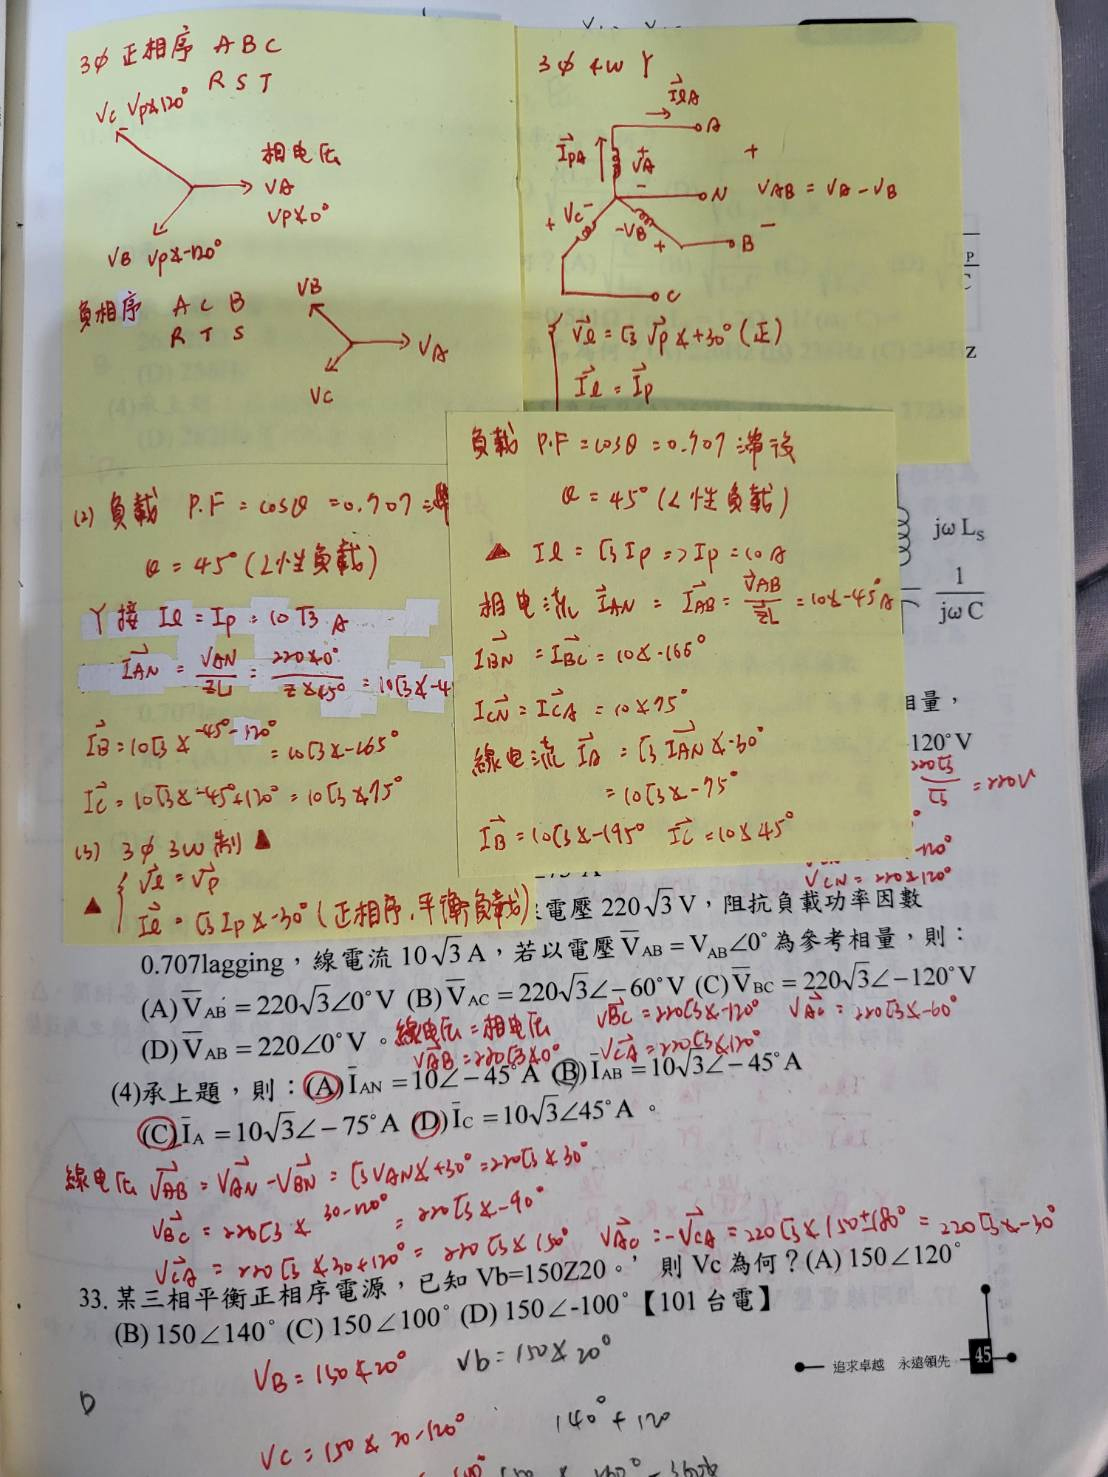 3φ 正相序 ABC
RST
Vc Vp∡120°
相电压
VA
Vp∡0°
VB Vp∡-120°
負相序 ACB
RTS
VB
VA
VC
3φ4W Y
IℓA
A
IPA
+
VA
-
N
+
VAB = VA - VB
-
+ Vc -
- VB +
B
C
Vℓ = √3 Vp∡+30° (正)
Iℓ = Ip
(2) 負載 P.F = cosθ = 0.707
θ = 45° (L性負載)
Y接 Iℓ = Ip = 10√3 A
IAN = VAN/ZL = 220∡0°/Z∡45° = 10√3∡-4
IB = 10√3∡-45°-120° = 10√3∡-165°
IC = 10√3∡-45°+120° = 10√3∡75°
(3) 3φ3W制 ▲
▲ { Vℓ = Vp
Iℓ = √3 Ip∡-30° (正相序,平衡負載)
負載 P.F = cosθ = 0.707 滯後
θ = 45° (L性負載)
▲ Iℓ = √3 Ip => Ip = 10A
相电流 IAN = IAB = VAB/ZL = 10∡-45°A
IBN = IBC = 10∡-165°
ICN = ICA = 10∡75°
線电流 IA = √3 IAN∡-30°
= 10√3∡-75°
IB = 10√3∡-195° IC = 10∡45°
P
C
Z
jωLs
1/jωC
相量,
120°V
220√3/√3 = 220V
-120°
VCN = 220∡120°
電壓 220√3 V,阻抗負載功率因數
0.707lagging,線電流 10√3 A,若以電壓 V̅AB = VAB∠0° 為參考相量,則:
(A) V̅AB = 220√3∠0° V (B) V̅AC = 220√3∠-60° V (C) V̅BC = 220√3∠-120° V
(D) V̅AB = 220∠0° V 。
線电压 = 相电压 VBC = 220√3∡-120° VAC = 220√3∡-60°
VAB = 220√3∡0° VCA = 220√3∡120°
(4)承上題,則:(A) I̅AN = 10∠-45° A (B) I̅AB = 10√3∠-45° A
(C) I̅A = 10√3∠-75° A (D) I̅C = 10√3∠45° A 。
線电压 VAB = VAN - VBN = √3 VAN∡+30° = 220√3∡30°
VBC = 220√3∡30-120° = 220√3∡-90°
VCA = 220√3∡30+120° = 220√3∡150° VAC = -VCA = 220√3∡150±180° = 220√3∡-30°
33. 某三相平衡正相序電源,已知 Vb=150Z20。,則 Vc 為何?(A) 150∠120°
(B) 150∠140° (C) 150∠100° (D) 150∠-100°【101 台電】
VB = 150∡20° Vb = 150∡20°
D
追求卓越 永遠領先 45
140°+120
VC = 150∡20-120°